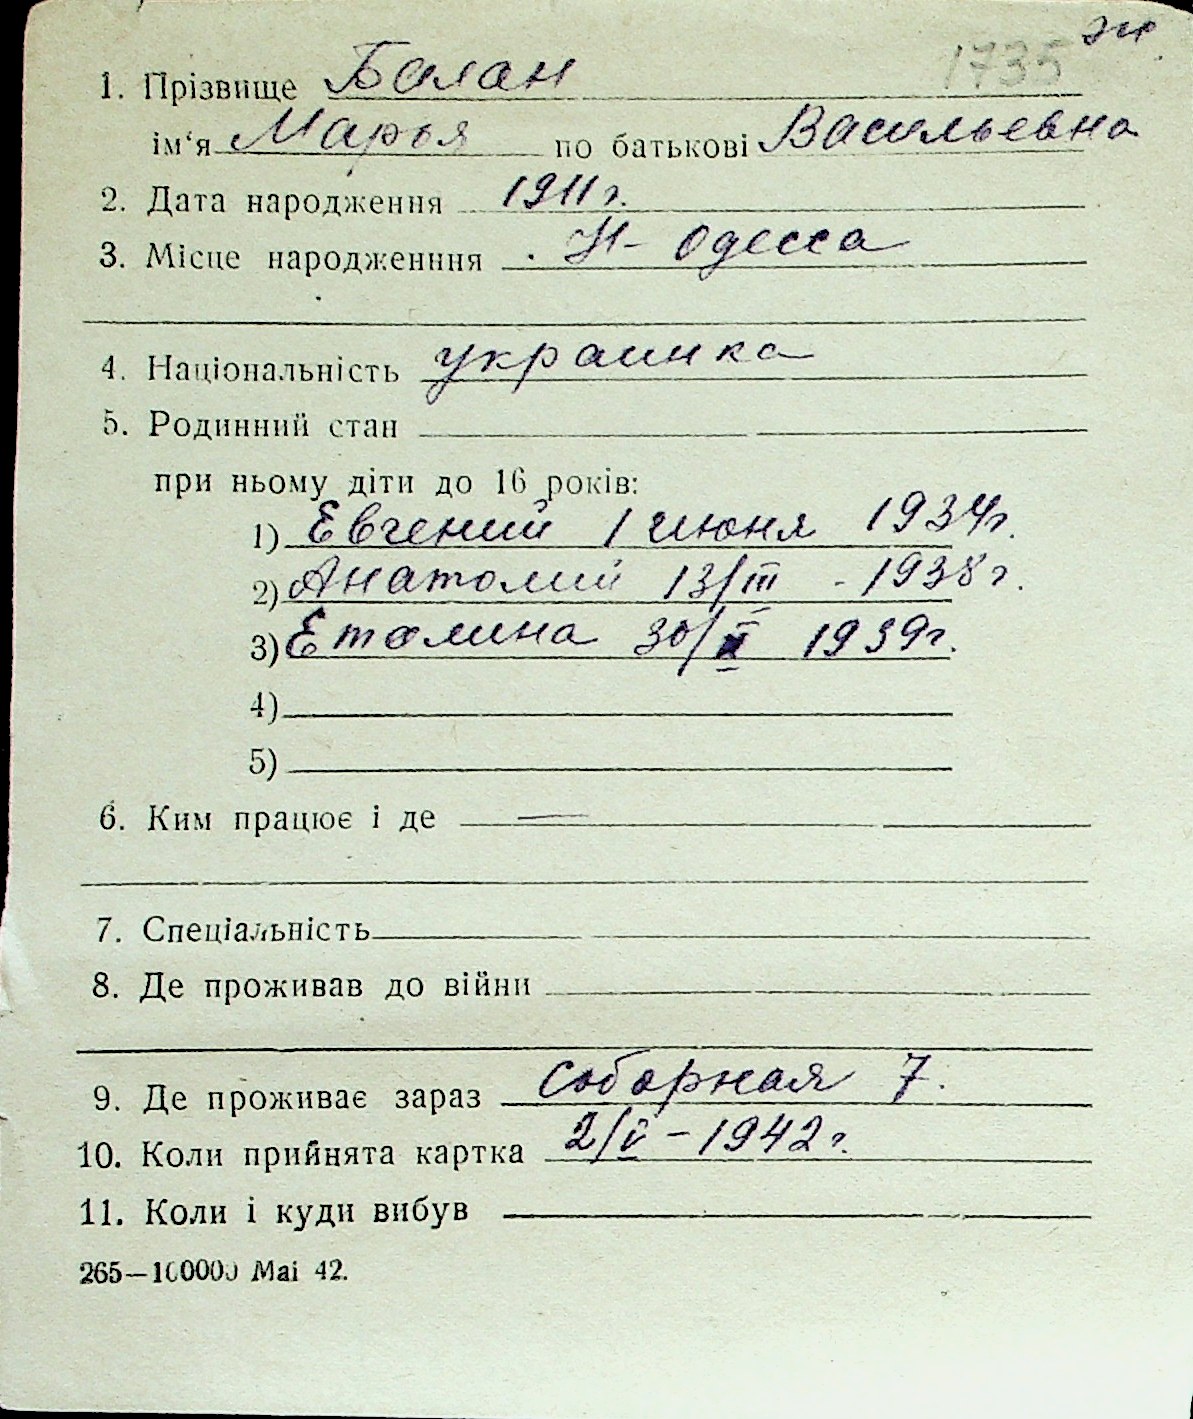 1735 ж.
1. Прізвище Балан
ім‘я Марья по батькові Васильевна
2. Дата народження 1911 г.
3. Місце народженння Н-Одесса
4. Національність украинка
5. Родинний стан
при ньому діти до 16 років:
1) Евгений 1 июня 1934г.
2) Анатолий 13/III - 1938 г.
3) Еталина 30/ 1939г.
4)
5)
6. Ким працює і де —
7. Спеціальність
8. Де проживав до війни
9. Де проживає зараз Соборная 7.
10. Коли прийнята картка 2/V - 1942 г.
11. Коли і куди вибув
265—100000 Маі 42.